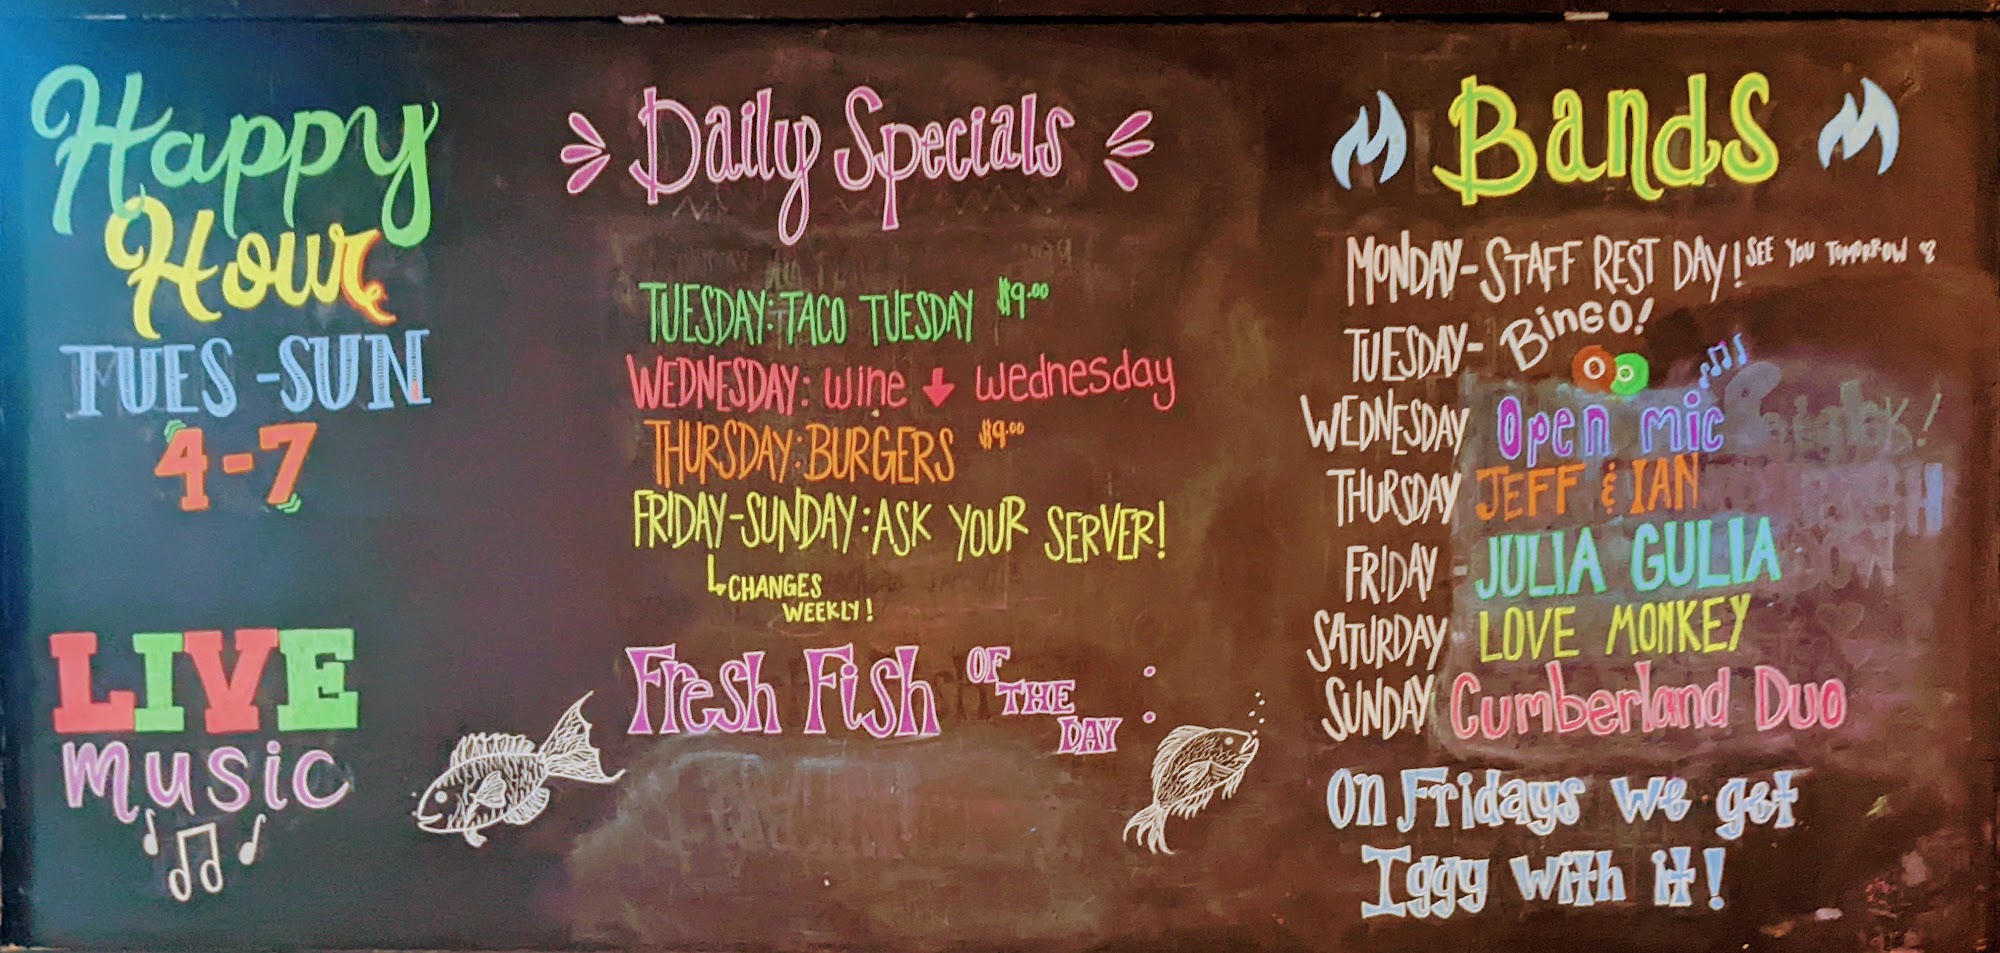 Happy
Hour
TUES-SUN
4-7
LIVE
music
Daily Specials
TUESDAY: TACO TUESDAY $9.00
WEDNESDAY: wine wednesday
THURSDAY: BURGERS $9.00
FRIDAY-SUNDAY: ASK YOUR SERVER!
CHANGES
WEEKLY!
Fresh Fish OF THE DAY:
Bands
MONDAY-STAFF REST DAY! SEE YOU TOMORROW
TUESDAY- BINGO!
WEDNESDAY Open mic
THURSDAY JEFF & IAN
FRIDAY - JULIA GULIA
SATURDAY LOVE MONKEY
SUNDAY Cumberland Duo
On Fridays we get
Iggy with it!